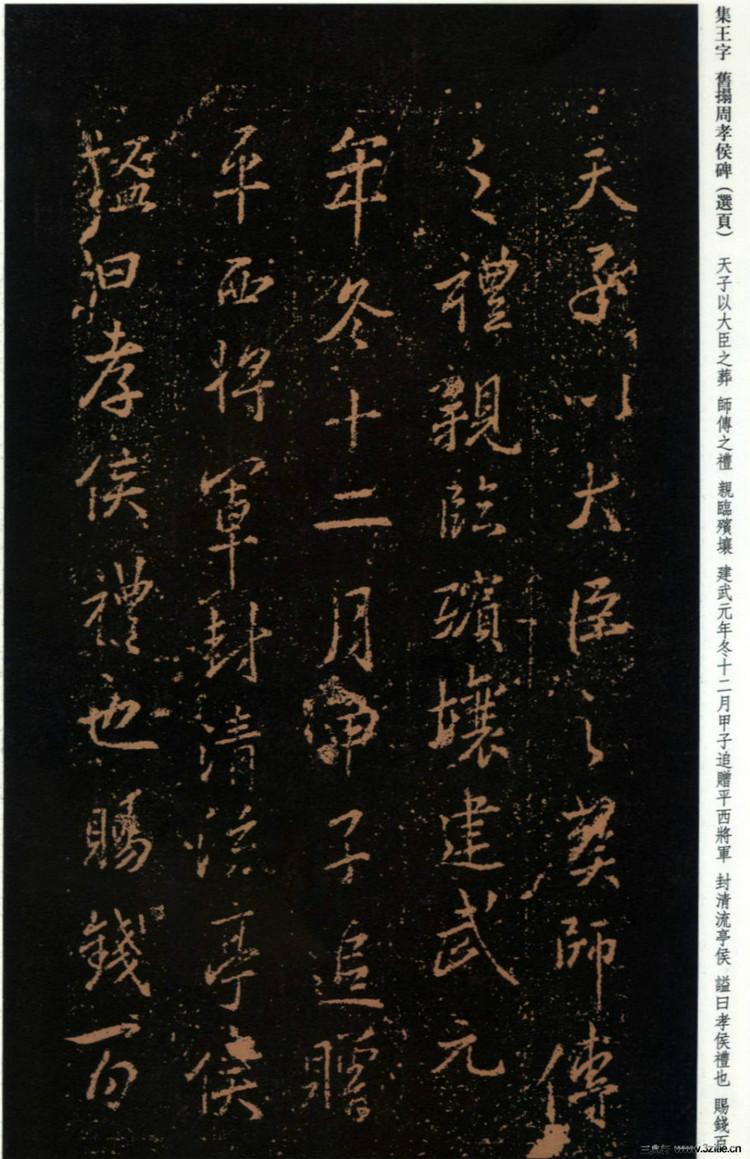 集王字 舊搨周孝侯碑（選頁） 天子以大臣之葬 師傅之禮 親臨殯壤 建武元年冬十二月甲子追贈平西將軍 封清流亭侯 謚曰孝侯禮也 賜錢百
天子以大臣之葬師傅
之禮親臨殯壤建武元
年冬十二月甲子追贈
平西將軍封清流亭侯
謚曰孝侯禮也賜錢百
www.3zitie.cn